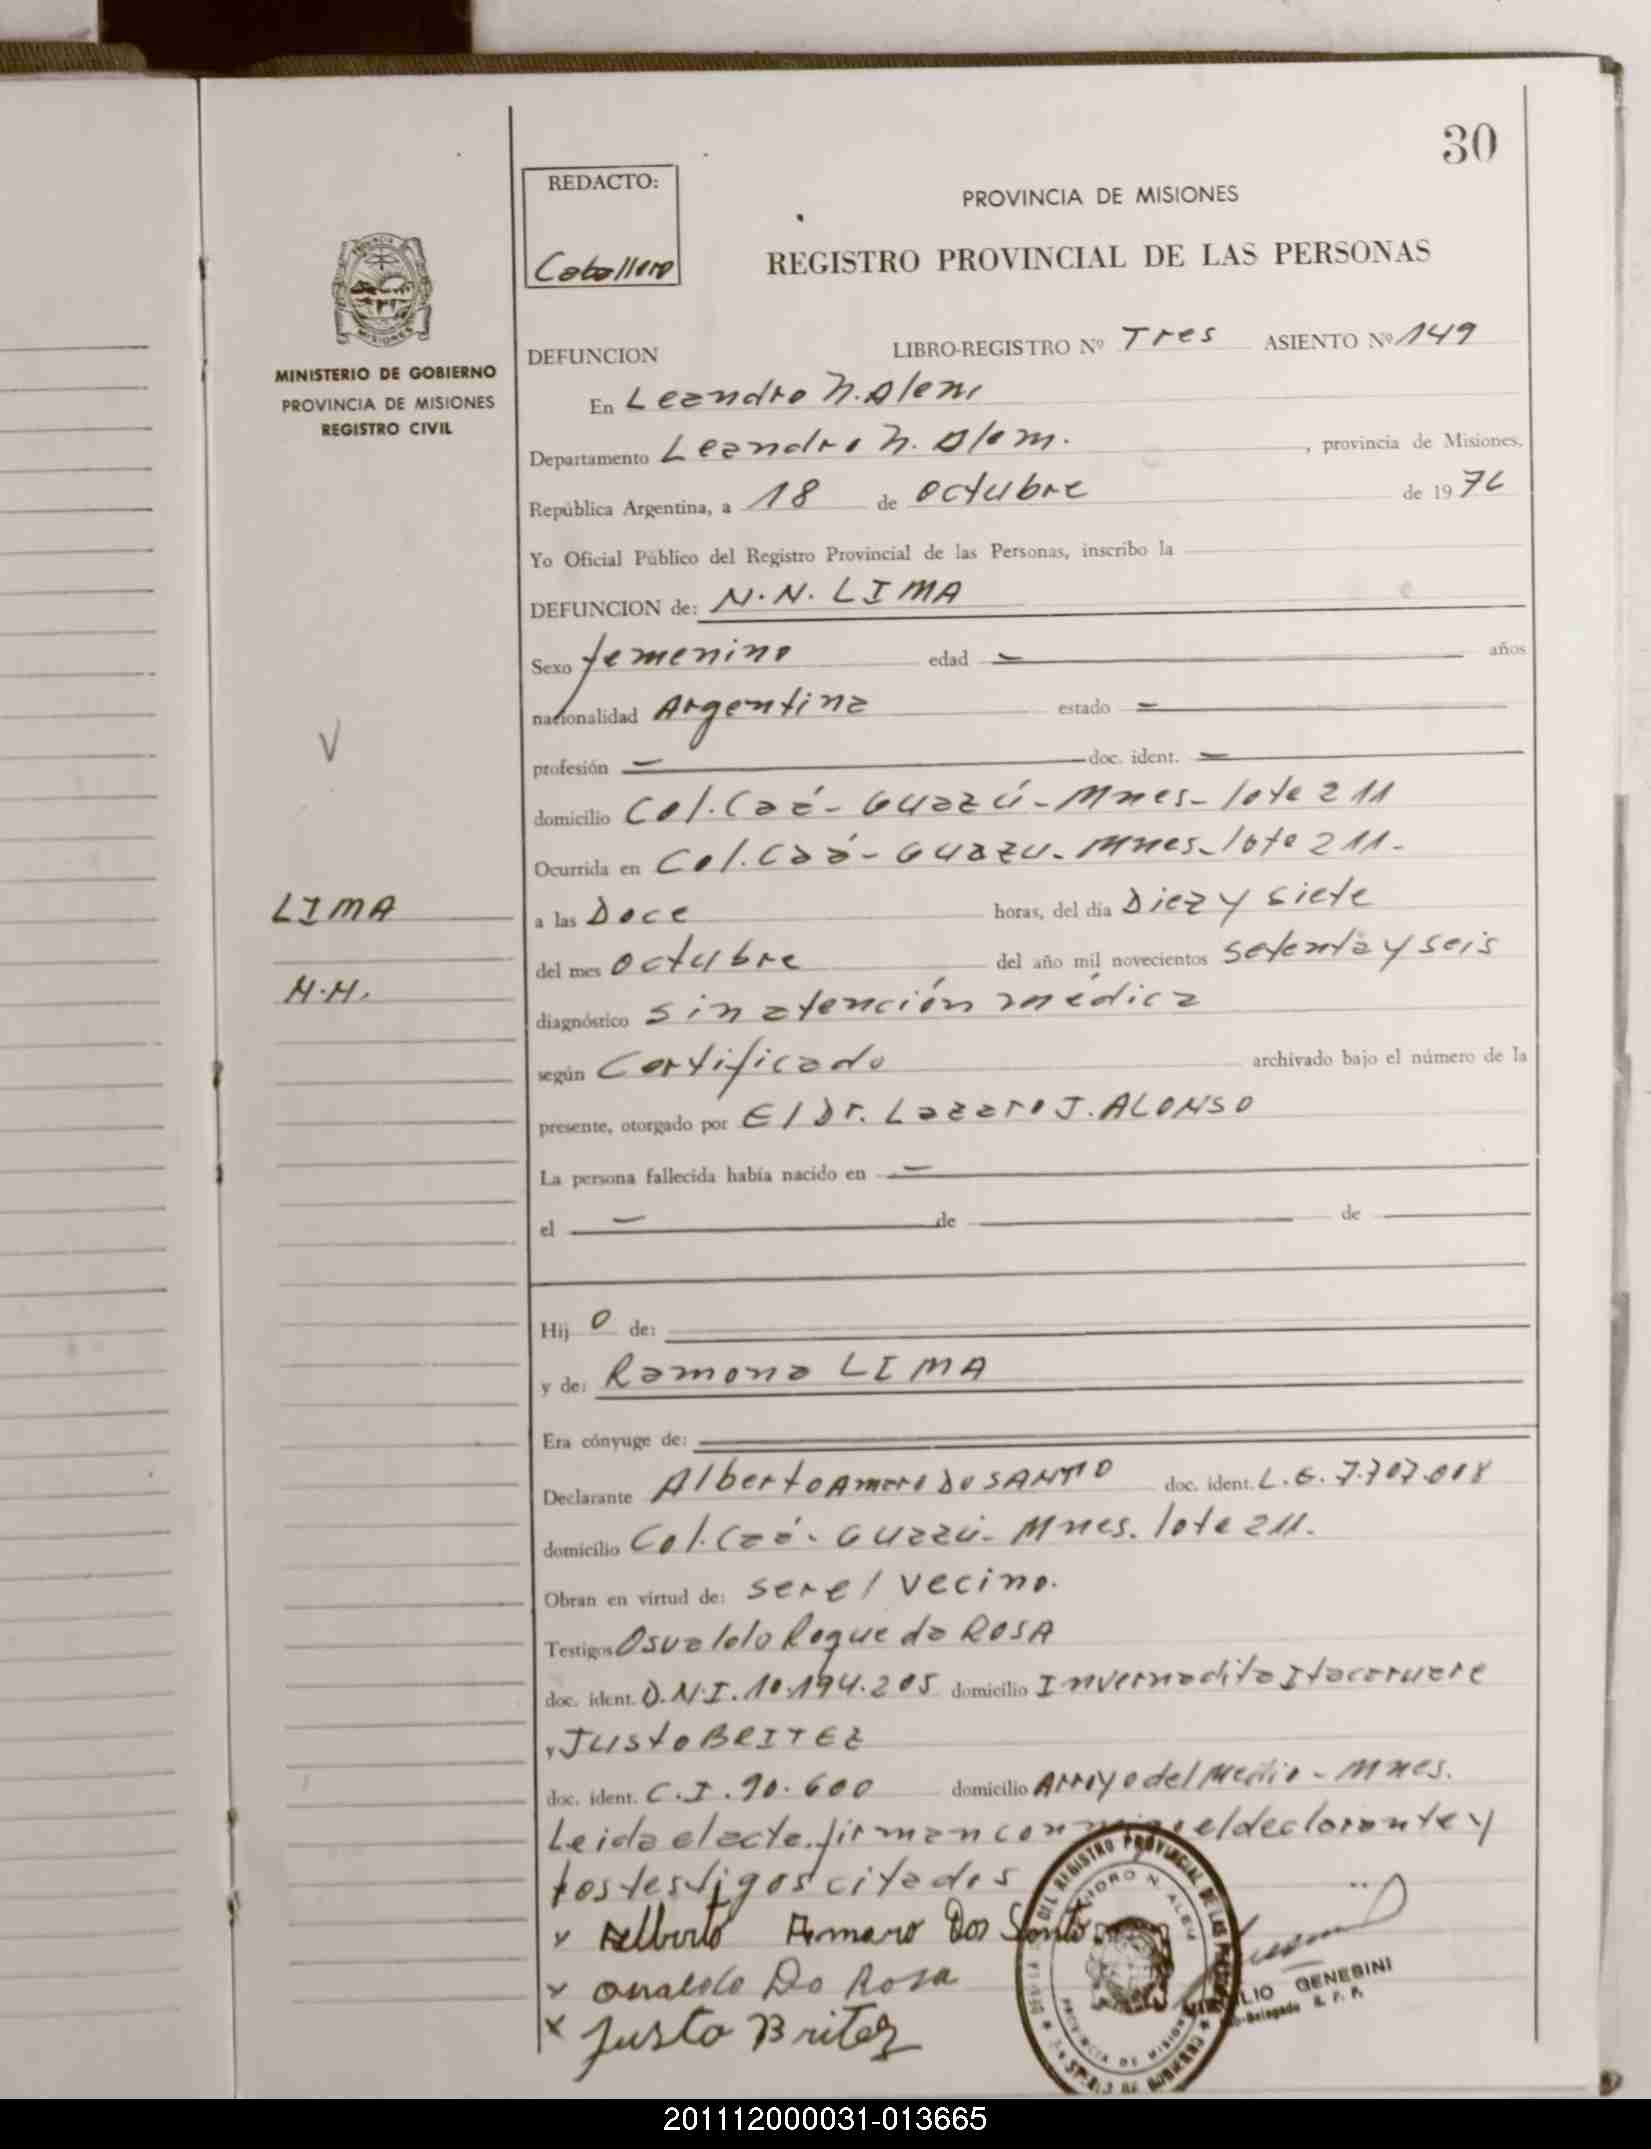 30
REDACTO:
Caballero
PROVINCIA DE MISIONES
REGISTRO PROVINCIAL DE LAS PERSONAS
PROVINCIA
MISIONES
MINISTERIO DE GOBIERNO
PROVINCIA DE MISIONES
REGISTRO CIVIL
DEFUNCION LIBRO-REGISTRO Nº Tres ASIENTO Nº 149
En Leandro N. Alem
Departamento Leandro N. Alem. , provincia de Misiones,
República Argentina, a 18 de octubre de 1976
Yo Oficial Público del Registro Provincial de las Personas, inscribo la
DEFUNCION de: N.N. LIMA
Sexo femenino edad — años
nacionalidad Argentina estado —
profesión — doc. ident. —
domicilio Col. Caá-Guazú-Mnes-lote 211
Ocurrida en Col. Caá-Guazu-Mnes-lote 211.-
LIMA
a las Doce horas, del día Diez y siete
del mes octubre del año mil novecientos setenta y seis
N.N.
diagnóstico sin atención médica
según Certificado archivado bajo el número de la
presente, otorgado por El Dr. Lazaro J. ALONSO
La persona fallecida había nacido en —
el — de de
Hij o de:
y de: Ramona LIMA
Era cónyuge de:
Declarante Alberto Amaro Do SANTO doc. ident. L.E. 7.707.018
domicilio Col. Caá-Guazú-Mnes. lote 211.
Obran en virtud de: ser el vecino.
Testigos Osvaldo Roque da ROSA
doc. ident. D.N.I. 10.194.205 domicilio Invernadita Itacaruare
y Justo BRITEZ
doc. ident. C.I. 90.600 domicilio Arroyo del Medio-Mnes.
Leida el acta. firman conmigo el declarante y
los testigos citados
x Alberto Armaro Dos Santo
x Osvaldo Da Rosa
x Justo Britez
DEL REGISTRO PROVINCIAL DE LAS
PROVINCIA DE MISIONES
GENESINI
R. P. P.
201112000031-013665